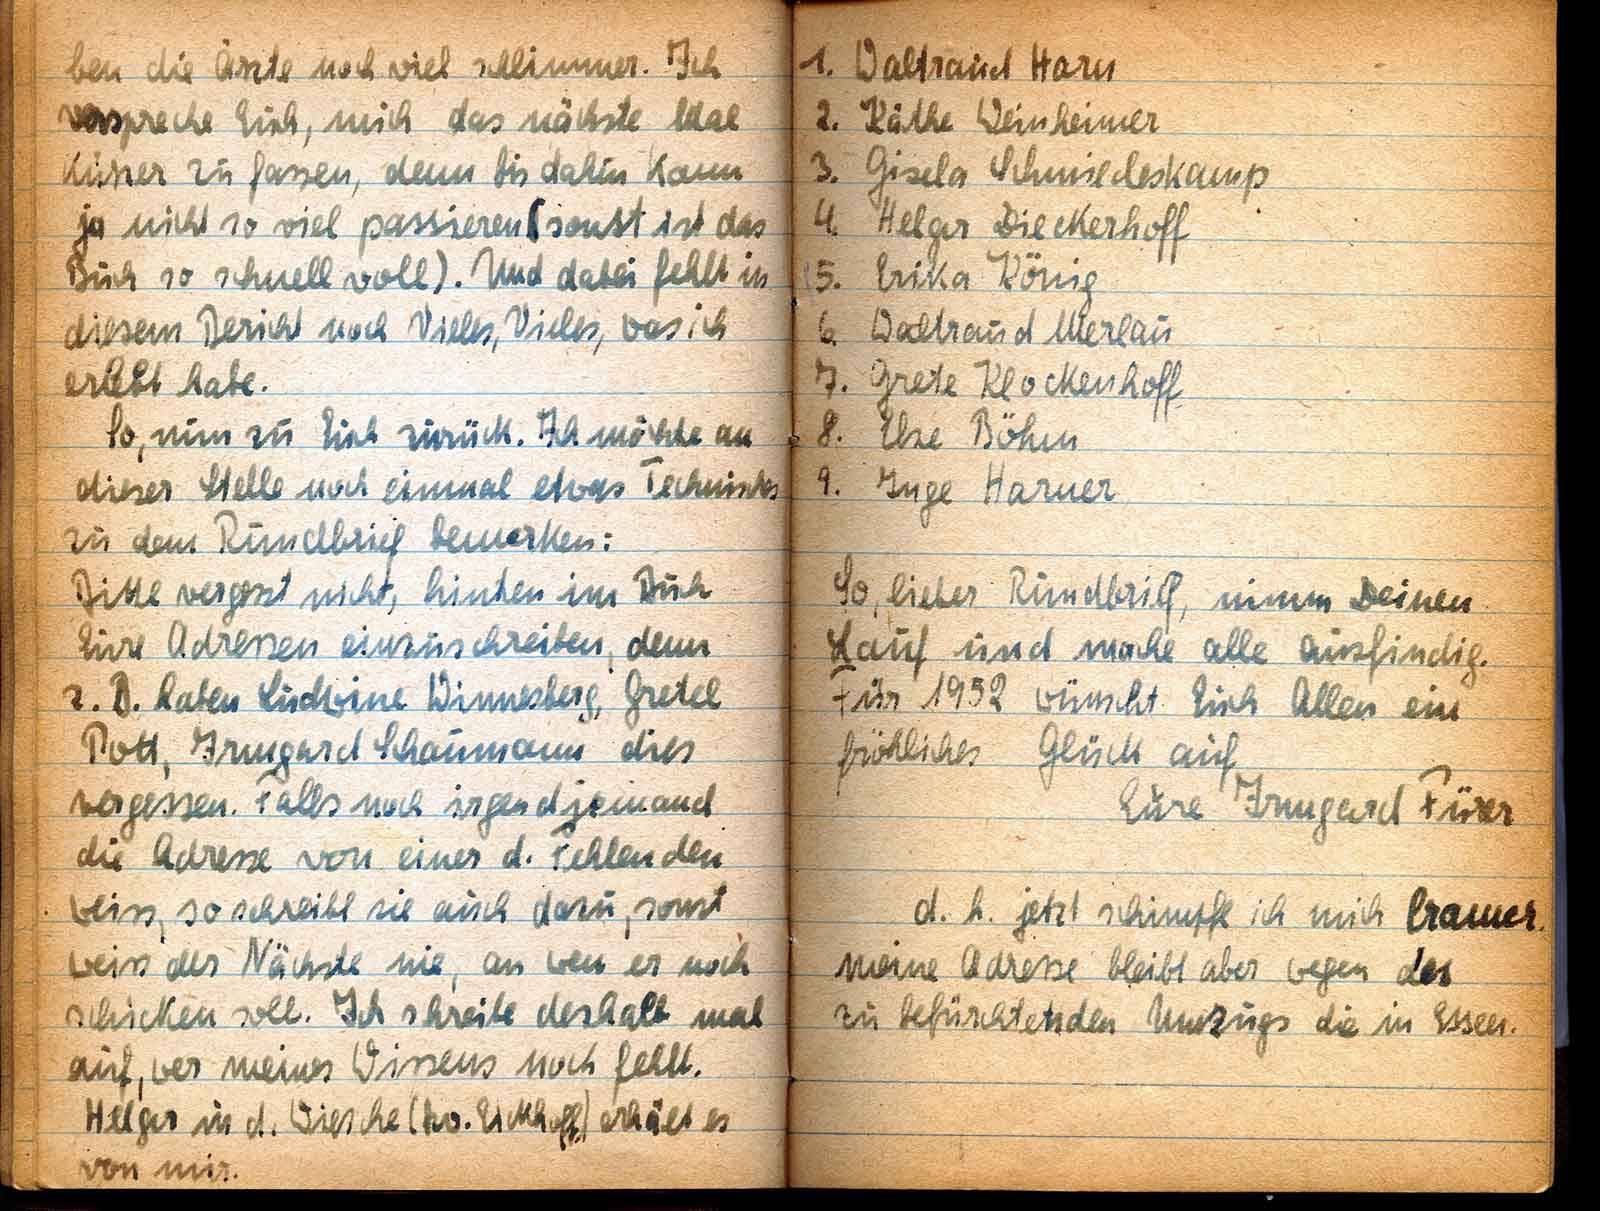 ben die Ärzte noch viel schlimmer. Ich
verspreche Euch, mich das nächste Mal
kürzer zu fassen, denn bis dahin kann
ja nicht so viel passieren (sonst ist das
Buch so schnell voll). Und dabei fehlt in
diesem Bericht noch Vieles, Vieles, was ich
erlebt habe.
So, nun zu Euch zurück. Ich möchte an
dieser Stelle noch einmal etwas Technisches
zu dem Rundbrief bemerken:
Bitte vergesst nicht, hinten im Buch
Eure Adressen einzuschreiben, denn
z. B. haben Ludwine Winnesberg, Gretel
Pott, Irmgard Schaumann dies
vergessen. Falls noch irgendjemand
die Adresse von einer d. Fehlenden
weiss, so schreibt sie auch dazu, sonst
weiss der Nächste nie, an wen er noch
schicken soll. Ich schreibe deshalb mal
auf, wer meines Wissens noch fehlt.
Helga in d. Wiesche (hw. Eickhoff) erhält es
von mir.
1. Waltraud Harn
2. Käthe Weinheimer
3. Gisela Schmiedeskamp
4. Helga Dieckerhoff
5. Erika König
6. Waltraud Merlau
7. Grete Klockenhoff
8. Else Böhm
9. Inge Harner
So, lieber Rundbrief, nimm Deinen
Lauf und mache alle ausfindig.
Für 1952 wünscht Euch Allen ein
fröhliches Glück auf
Eure Irmgard Fürer
d. h. jetzt schimpfe ich mich Cramer.
meine Adresse bleibt aber wegen des
zu befürchtenden Umzugs die in Essen.